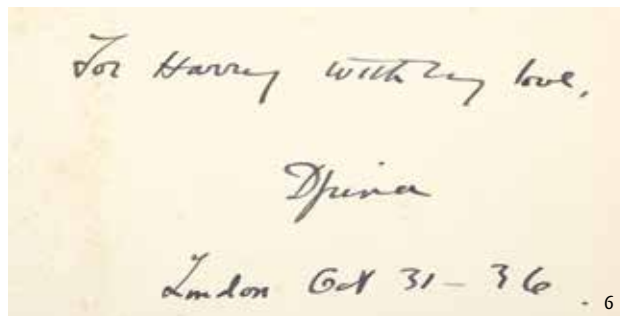 For Harry with my love,
Djuna
London Oct 31 – 36.
6